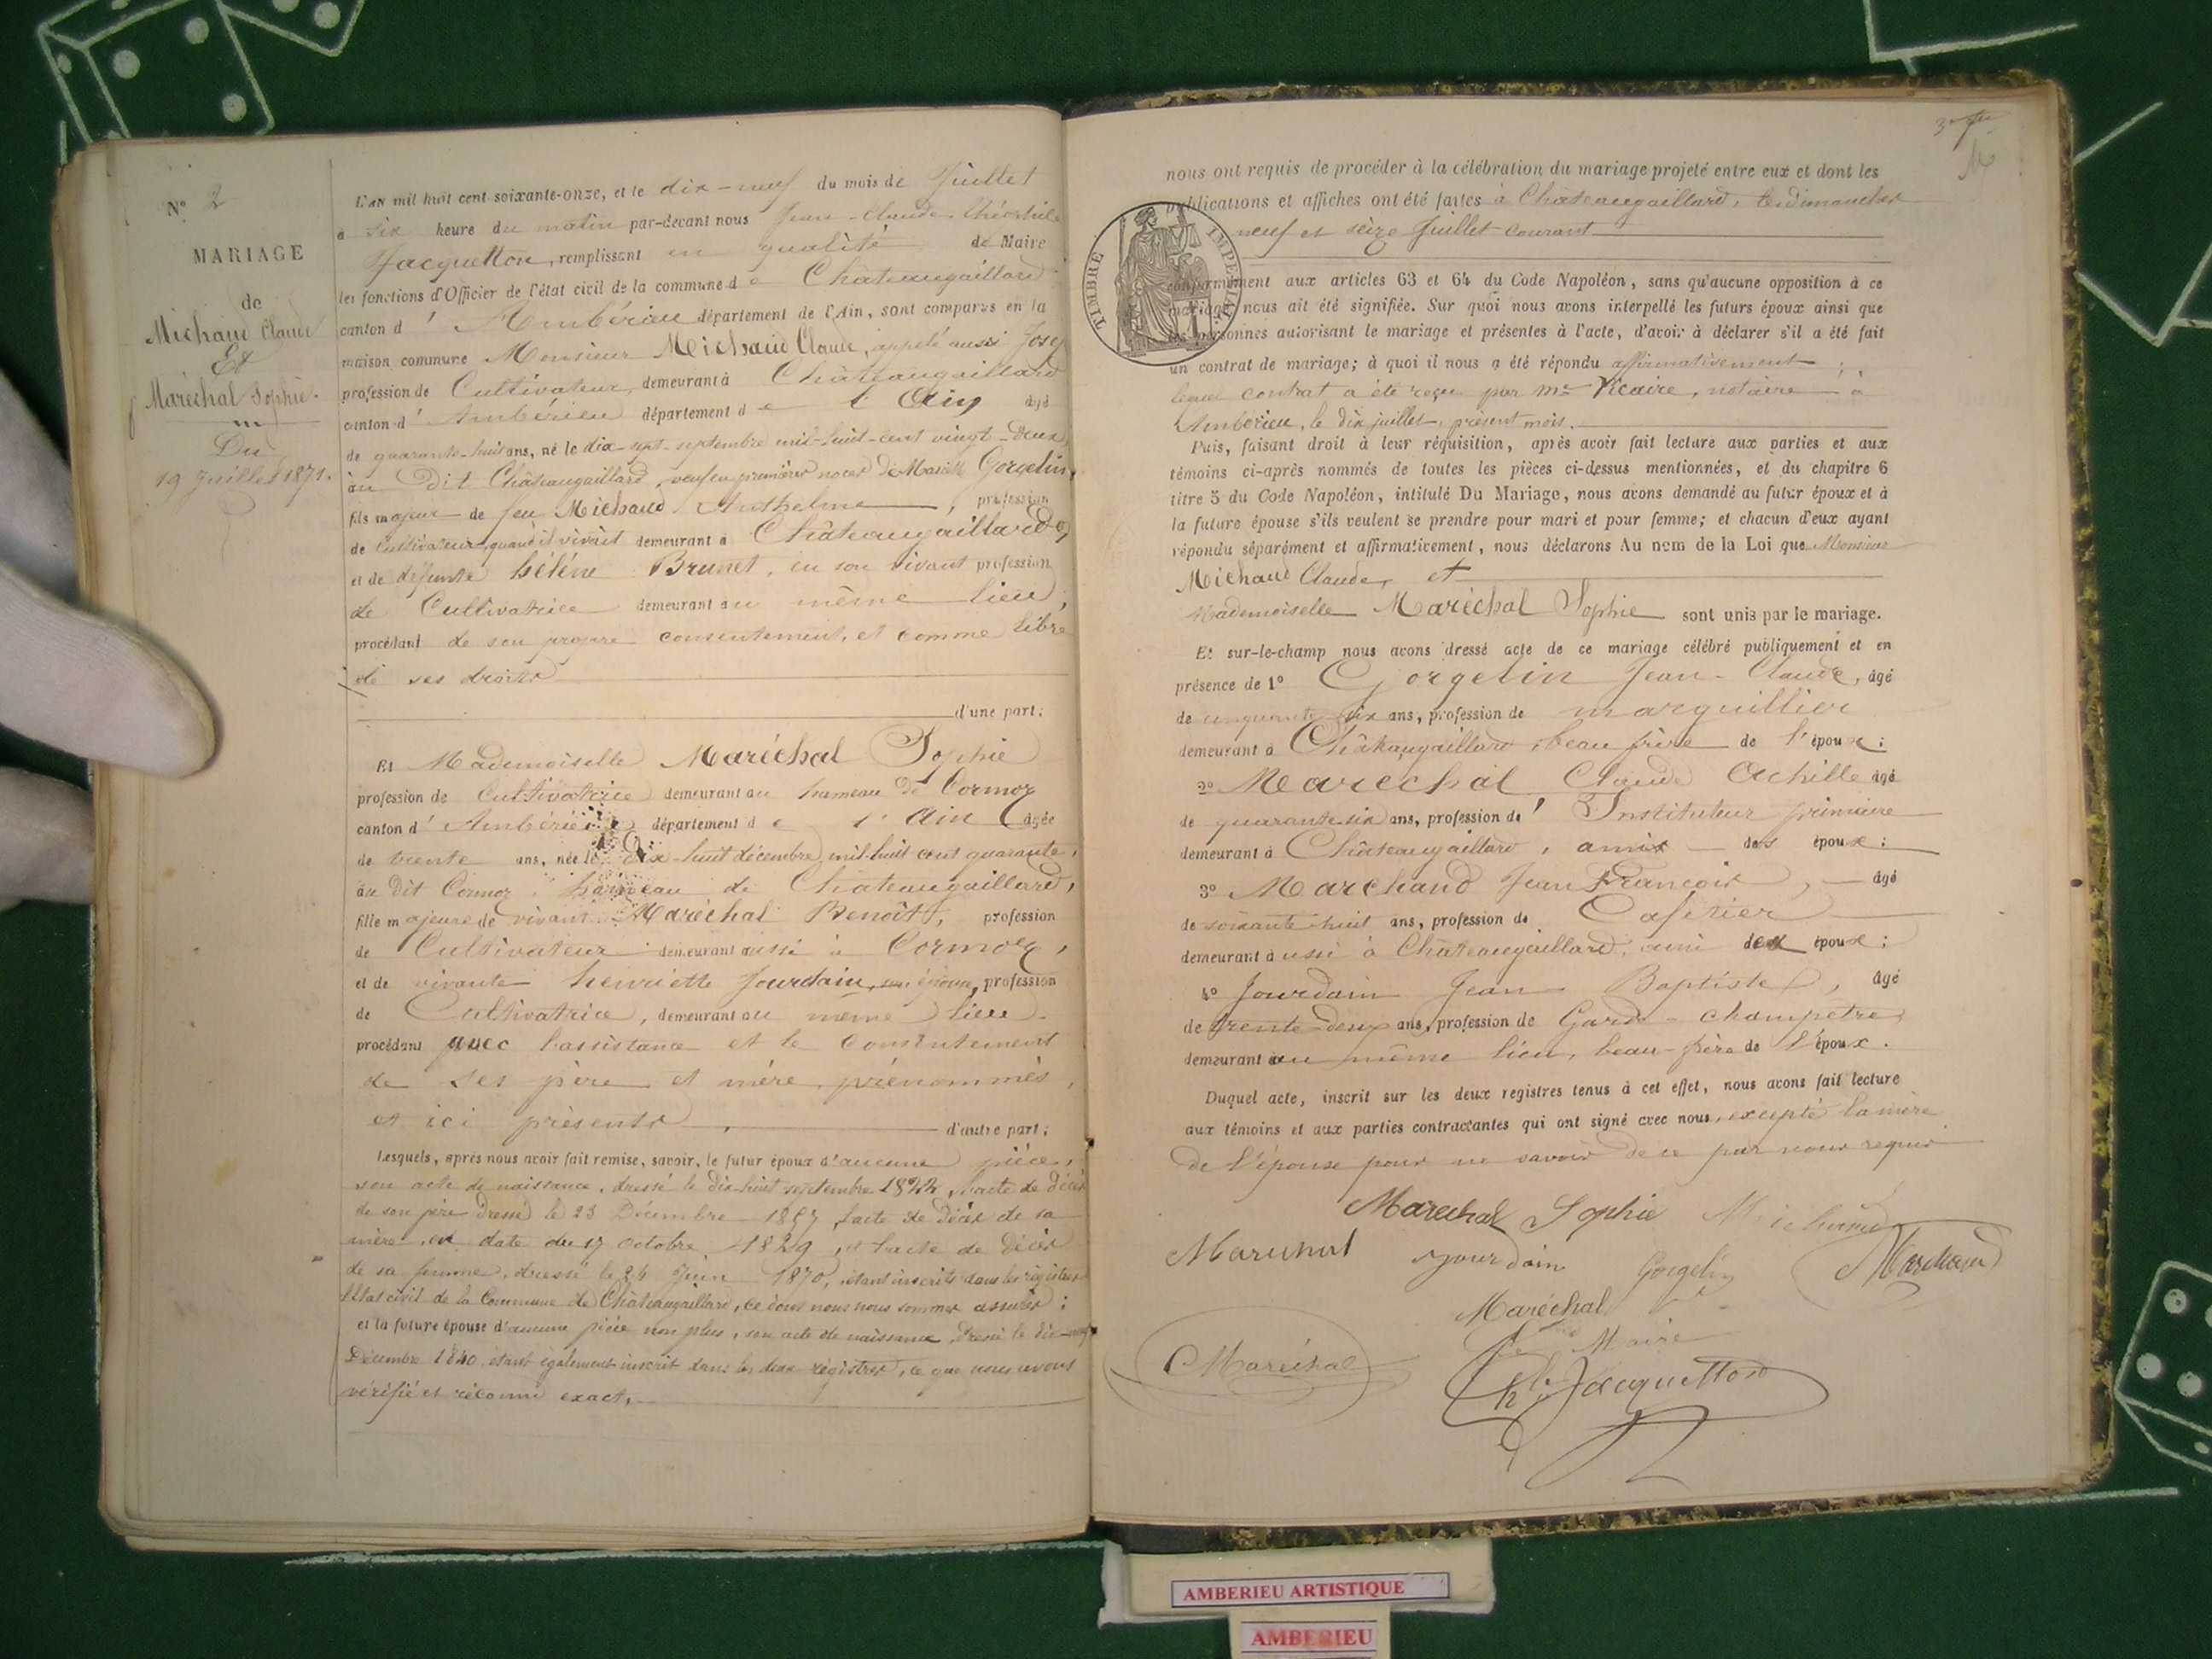 N° 2
MARIAGE
de
Michaud Claude
Et
Maréchal Sophie.
Du
19 Juillet 1871.
L'AN mil huit cent soixante-onze, et le dix-neuf du mois de Juillet
a six heure du matin par-devant nous Jean-Claude Théophile
Jacquetton, remplissant en qualité de Maire
les fonctions d'Officier de l'état civil de la commune de Châteaugaillard
canton d'Ambérieu département de l'Ain, sont comparus en la
maison commune Monsieur Michaud Claude, appelé aussi
profession de Cultivateur, demeurant à Châteaugaillard
canton d'Ambérieu département de l'Ain âgé
de quarante-huit ans, né le dix-sept septembre mil-huit-cent vingt-deux,
au Dit Châteaugaillard, veuf en premières noces de Gorgelin,
fils majeur de feu Michaud Anthelme, profession
de Cultivateur, quand il vivait demeurant à Châteaugaillard,
et de défunte hélène Brunet, en son vivant profession
de Cultivatrice demeurant au même lieu,
procédant de son propre consentement, et comme libre
de ses droits
d'une part;
Et Mademoiselle Maréchal Sophie
profession de Cultivatrice demeurant au hameau de Cormoz
canton d'Ambérieu département de l'Ain âgée
de trente ans, née le dix-huit décembre mil-huit cent quarante,
au dit Cormoz, hameau de Châteaugaillard,
fille majeure de vivant Maréchal Benoît, profession
de Cultivateur demeurant aussi à Cormoz,
et de vivante henriette Jourdain, son épouse, profession
de Cultivatrice, demeurant au même lieu
procédant avec l'assistance et le consentement
de ses père et mère, prénommés,
et ici présents,
d'autre part;
Lesquels, après nous avoir fait remise, savoir, le futur époux d'aucune pièce,
son acte de naissance, dressé le dix-huit septembre 1822, l'acte de décès
de son père dressé le 23 Décembre 1857, l'acte de décès de sa
mère, en date du 17 octobre 1829, et l'acte de décès
de sa femme, dressé le 26 Juin 1870, étant inscrits dans les registres
de la Commune de Châteaugaillard, ce dont nous nous sommes assurés;
et la future épouse d'aucune pièce non plus, son acte de naissance, dressé le dix-neuf
Décembre 1840, étant également inscrit dans les deux registres, ce que nous avons
vérifié et reconnu exact.
nous ont requis de procéder à la célébration du mariage projeté entre eux et dont les
publications et affiches ont été faites à Châteaugaillard, les dimanches
neuf et seize Juillet courant
TIMBRE IMPÉRIAL
conformément aux articles 63 et 64 du Code Napoléon, sans qu'aucune opposition à ce
mariage nous ait été signifiée. Sur quoi nous avons interpellé les futurs époux ainsi que
les personnes autorisant le mariage et présentes à l'acte, d'avoir à déclarer s'il a été fait
un contrat de mariage; à quoi il nous a été répondu affirmativement;
lequel contrat a été reçu par Me Vicaire, notaire à
Ambérieu, le dix juillet, présent mois.
Puis, faisant droit à leur réquisition, après avoir fait lecture aux parties et aux
témoins ci-après nommés de toutes les pièces ci-dessus mentionnées, et du chapitre 6
titre 5 du Code Napoléon, intitulé Du Mariage, nous avons demandé au futur époux et à
la future épouse s'ils veulent se prendre pour mari et pour femme; et chacun d'eux ayant
répondu séparément et affirmativement, nous déclarons Au nom de la Loi que Monsieur
Michaud Claude, et
Mademoiselle Maréchal Sophie sont unis par le mariage.
Et sur-le-champ nous avons dressé acte de ce mariage célébré publiquement et en
présence de 1° Gorgelin Jean-Claude, âgé
de cinquante six ans, profession de marguillier
demeurant à Châteaugaillard, beau frère de l'époux;
2° Maréchal Claude Achille âgé
de quarante six ans, profession d'Instituteur primaire
demeurant à Châteaugaillard, amis des époux;
3° Marchand Jean François, âgé
de soixante-huit ans, profession de Cafetier
demeurant aussi à Châteaugaillard, ami des époux;
4° Jourdain Jean Baptiste, âgé
de trente-deux ans, profession de Garde-champêtre
demeurant au même lieu, beau-frère de l'époux.
Duquel acte, inscrit sur les deux registres tenus à cet effet, nous avons fait lecture
aux témoins et aux parties contractantes qui ont signé avec nous, excepté la mère
de l'épouse pour ne savoir de ce par nous requis
Marechal Sophie Michaud
Marechal Jourdain Gorgelin Marchand
Maréchal
Le Maire
Maréchal
Jacquetton
AMBERIEU ARTISTIQUE
AMBERIEU